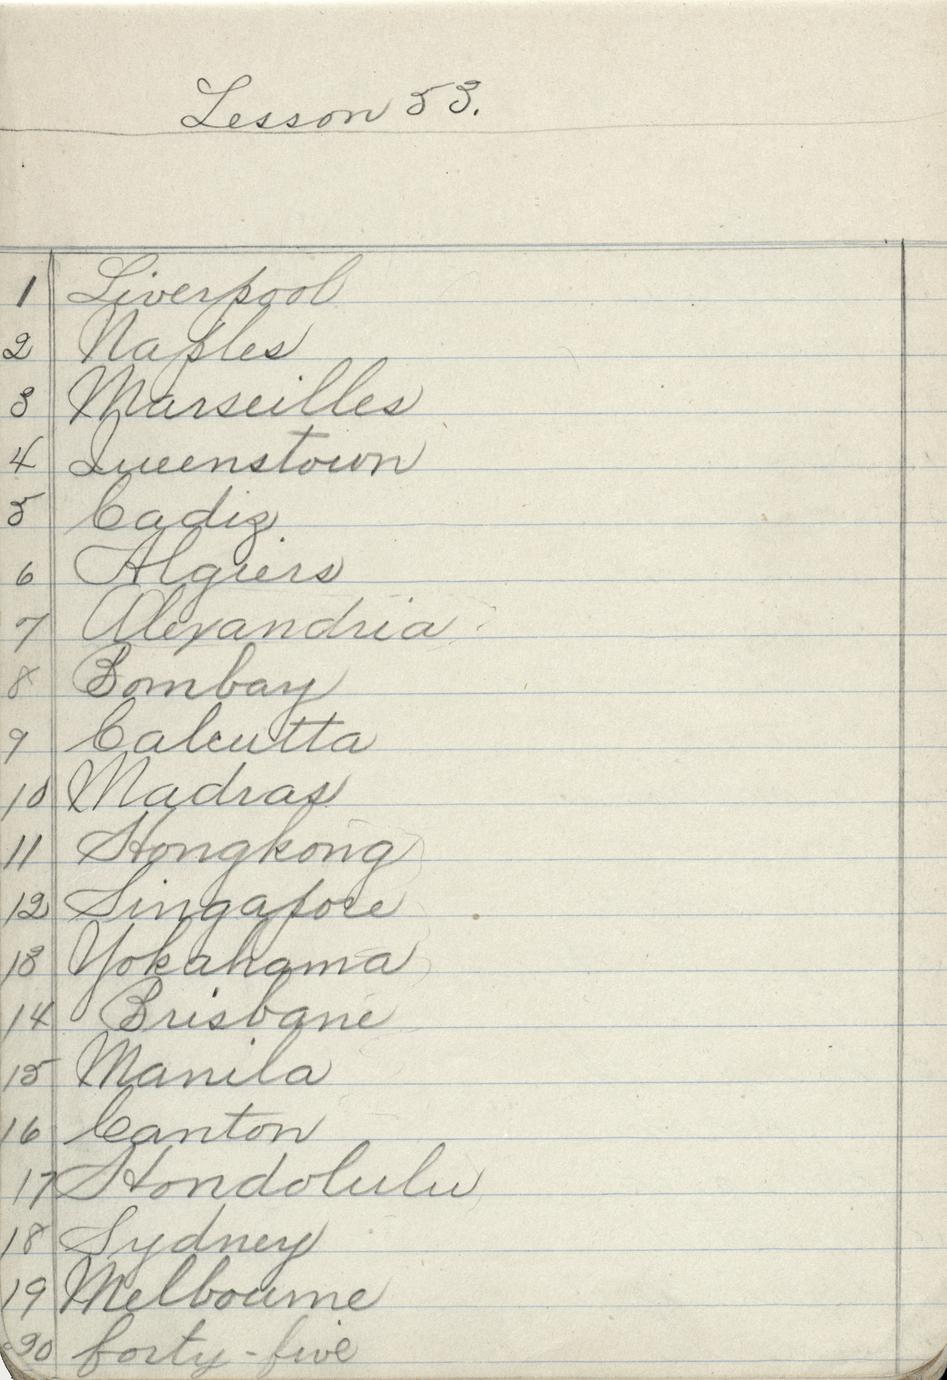 Lesson 53.
1 Liverpool
2 Naples
3 Marseilles
4 Queenstown
5 Cadiz
6 Algiers
7 Alexandria
8 Bombay
9 Calcutta
10 Madras
11 Hongkong
12 Singapore
13 Yokahama
14 Brisbane
15 Manila
16 Canton
17 Hondolulu
18 Sydney
19 Melbourne
20 forty-five